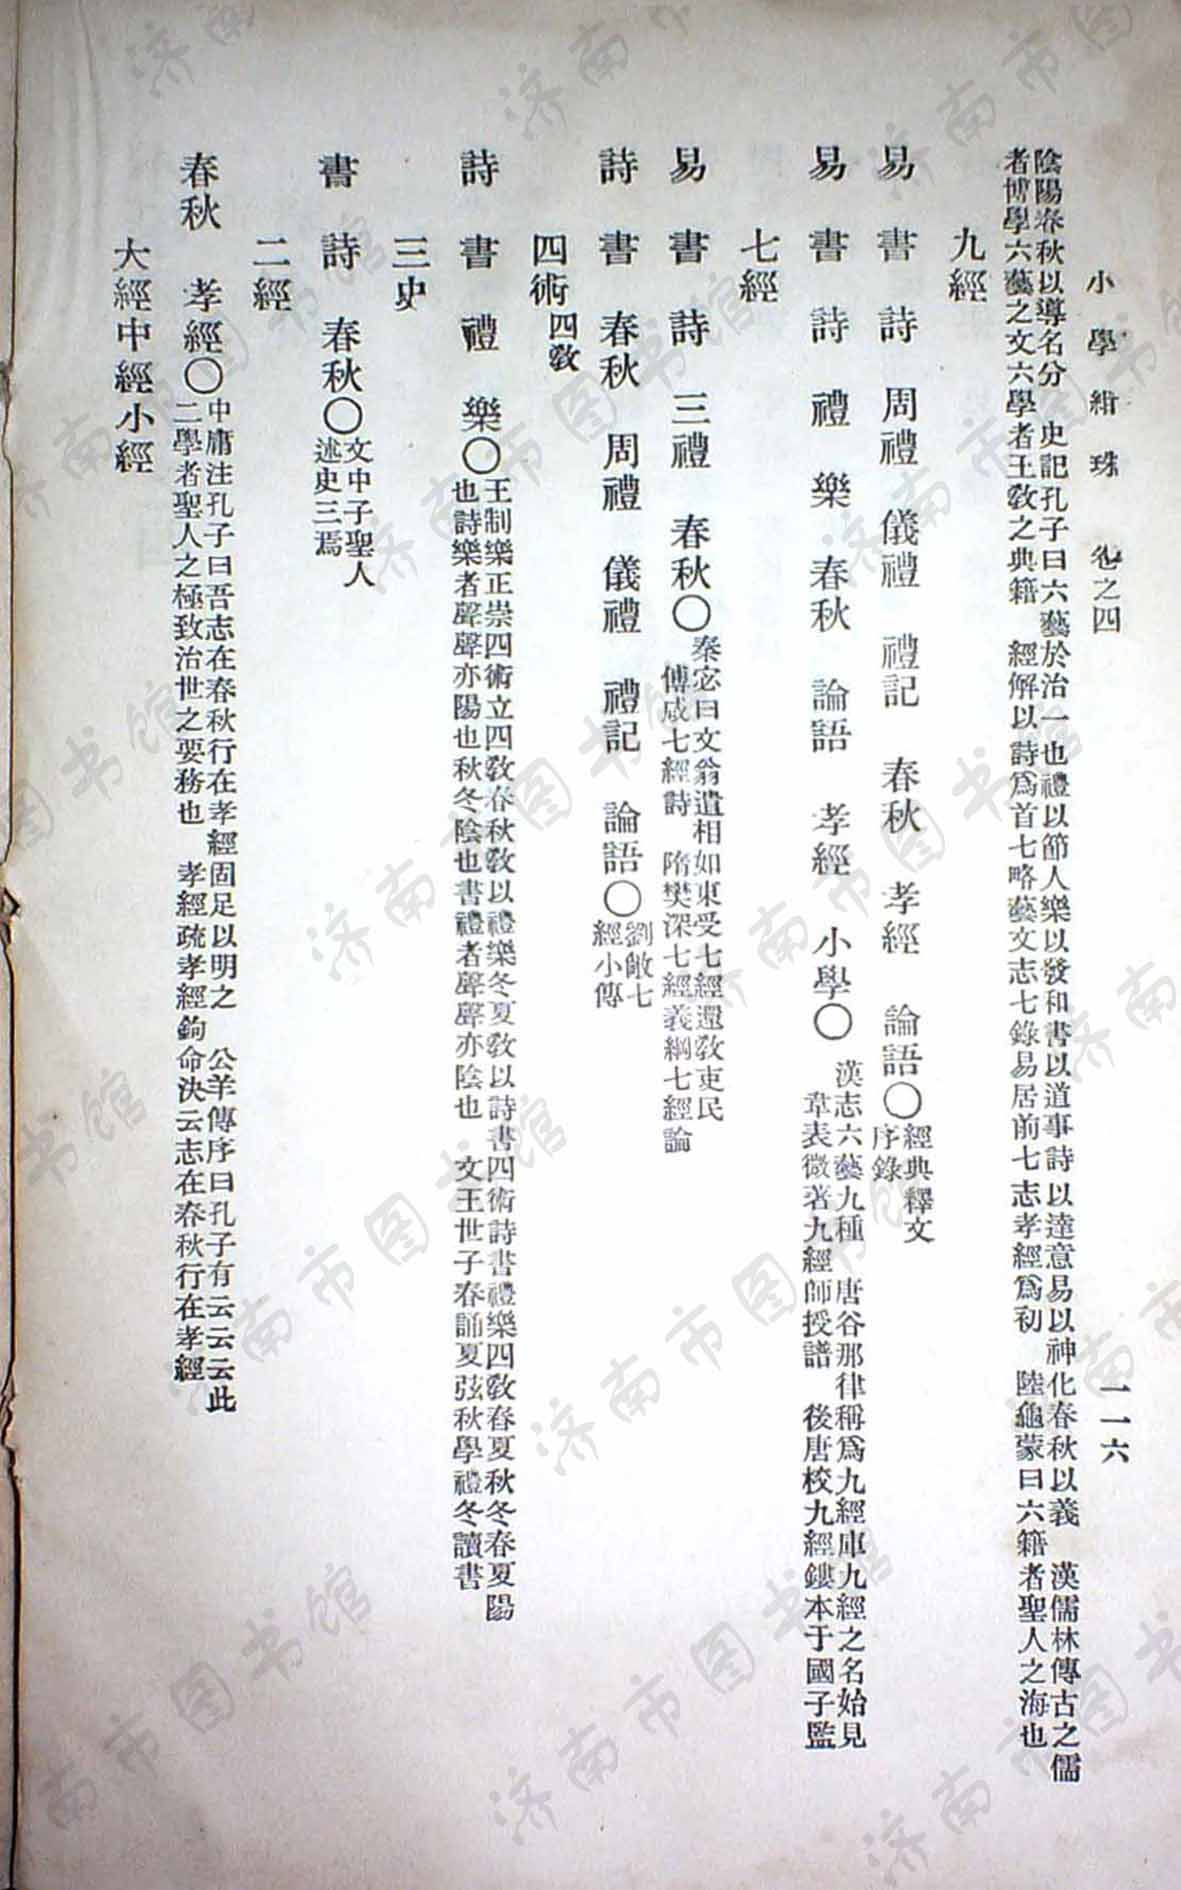 小學紺珠 卷之四 一一六
陰陽春秋以導名分 史記孔子曰六藝於治一也禮以節人樂以發和書以道事詩以達意易以神化春秋以義 漢儒林傳古之儒
者博學六藝之文六學者王敎之典籍 經解以詩爲首七略藝文志七錄易居前七志孝經爲初 陸龜蒙曰六籍者聖人之海也
九經
易 書 詩 周禮 儀禮 禮記 春秋 孝經 論語〇經典釋文
序錄
易 書 詩 禮 樂 春秋 論語 孝經 小學〇漢志六藝九種 唐谷那律稱爲九經庫九經之名始見
韋表微著九經師授譜 後唐校九經鏤本于國子監
七經
易 書 詩 三禮 春秋〇秦宓曰文翁遣相如東受七經還敎吏民
傅咸七經詩 隋樊深七經義綱七經論
詩 書 春秋 周禮 儀禮 禮記 論語〇劉敞七
經小傳
四術四敎
詩 書 禮 樂〇王制樂正崇四術立四敎春秋敎以禮樂冬夏敎以詩書四術詩書禮樂四敎春夏秋冬春夏陽
也詩樂者聲聲亦陽也秋冬陰也書禮者聲聲亦陰也 文王世子春誦夏弦秋學禮冬讀書
三史
書 詩 春秋〇文中子聖人
述史三焉
二經
春秋 孝經〇中庸注孔子曰吾志在春秋行在孝經固足以明之 公羊傳序曰孔子有云云云此
二學者聖人之極致治世之要務也 孝經疏孝經鉤命決云志在春秋行在孝經
大經中經小經
济南市图书馆